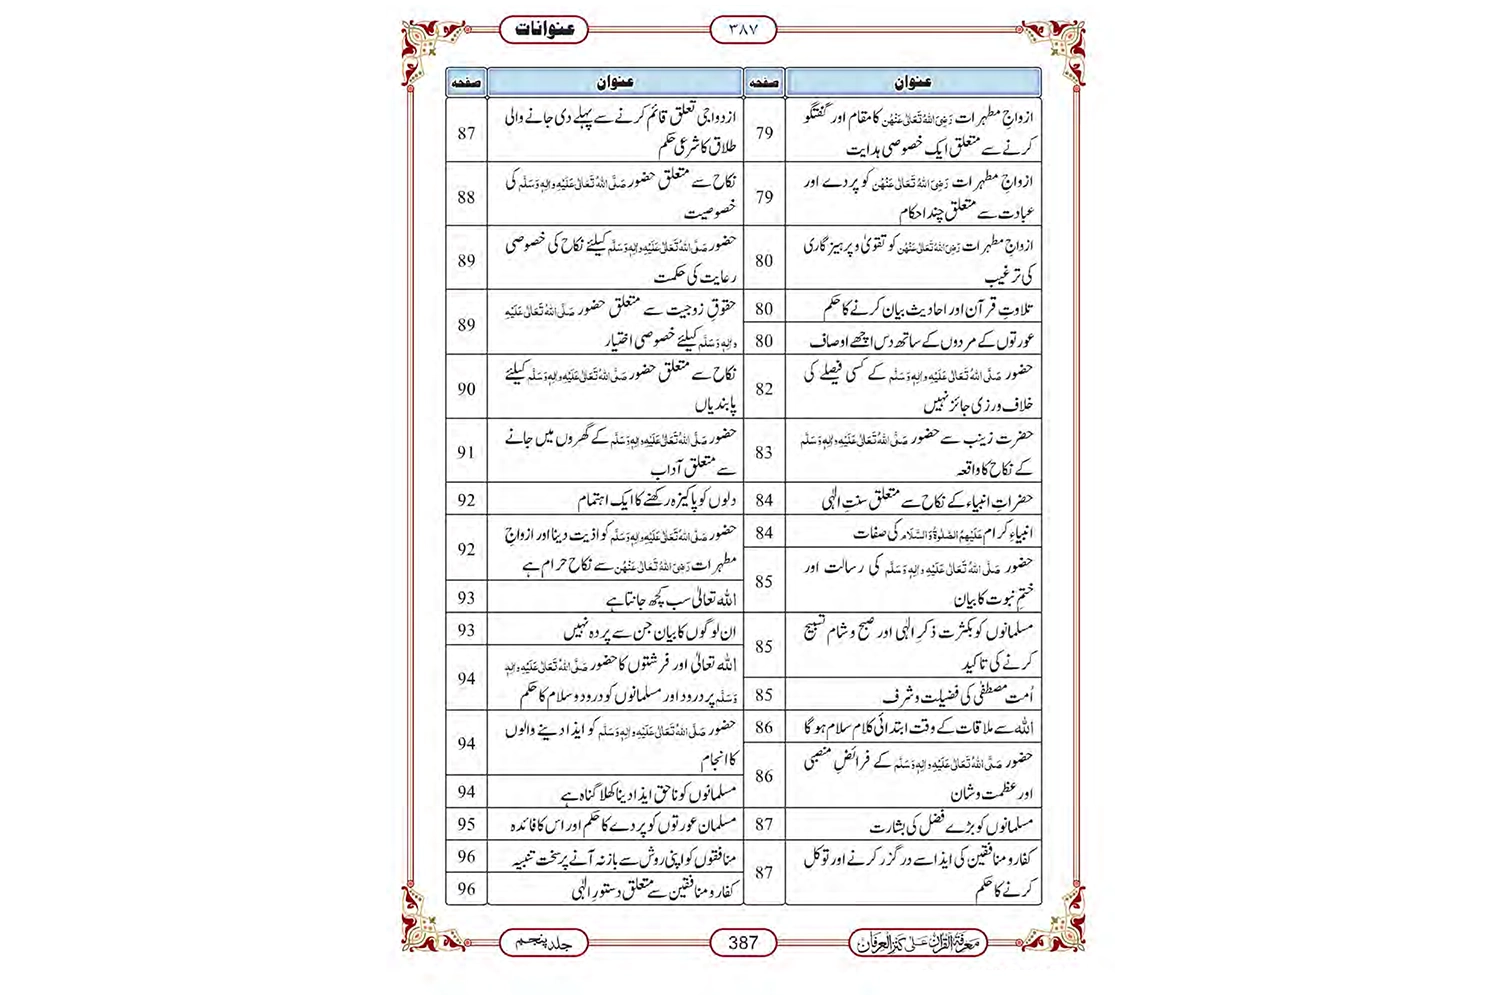 عنوانات
۳۸۷
عنوان
صفحہ
عنوان
صفحہ
ازواجِ مطہرات رَضِیَ اللہُ تَعَالٰی عَنْهُن کا مقام اور گفتگو
کرنے سے متعلق ایک خصوصی ہدایت
79
ازواجِ مطہرات رَضِیَ اللہُ تَعَالٰی عَنْهُن کو پردے اور
عبادت سے متعلق چند احکام
79
ازواجِ مطہرات رَضِیَ اللہُ تَعَالٰی عَنْهُن کو تقویٰ و پرہیز گاری
کی ترغیب
80
تلاوتِ قرآن اور احادیث بیان کرنے کا حکم
80
عورتوں کے مردوں کے ساتھ دس اچھے اوصاف
80
حضور صَلَّی اللہُ تَعَالٰی عَلَیْهِ واٰلِهٖ وَسَلَّم کے کسی فیصلے کی
خلاف ورزی جائز نہیں
82
حضرت زینب سے حضور صَلَّی اللہُ تَعَالٰی عَلَیْهِ واٰلِهٖ وَسَلَّم
کے نکاح کا واقعہ
83
حضراتِ انبیاء کے نکاح سے متعلق سنتِ الٰہی
84
انبیاءِ کرام عَلَیْهِمُ الصَّلٰوةُ وَالسَّلَام کی صفات
84
حضور صَلَّی اللہُ تَعَالٰی عَلَیْهِ واٰلِهٖ وَسَلَّم کی رسالت اور
ختمِ نبوت کا بیان
85
مسلمانوں کو بکثرت ذکرِ الٰہی اور صبح و شام تسبیح
کرنے کی تاکید
85
اُمت مصطفٰی کی فضیلت و شرف
85
اللہ سے ملاقات کے وقت ابتدائی کلام سلام ہو گا
86
حضور صَلَّی اللہُ تَعَالٰی عَلَیْهِ واٰلِهٖ وَسَلَّم کے فرائضِ منصبی
اور عظمت و شان
86
مسلمانوں کو بڑے فضل کی بشارت
87
کفار و منافقین کی ایذا سے در گزر کرنے اور توکل
کرنے کا حکم
87
ازدواجی تعلق قائم کرنے سے پہلے دی جانے والی
طلاق کا شرعی حکم
87
نکاح سے متعلق حضور صَلَّی اللہُ تَعَالٰی عَلَیْهِ واٰلِهٖ وَسَلَّم کی
خصوصیت
88
حضور صَلَّی اللہُ تَعَالٰی عَلَیْهِ واٰلِهٖ وَسَلَّم کیلئے نکاح کی خصوصی
رعایت کی حکمت
89
حقوقِ زوجیت سے متعلق حضور صَلَّی اللہُ تَعَالٰی عَلَیْهِ
واٰلِهٖ وَسَلَّم کیلئے خصوصی اختیار
89
نکاح سے متعلق حضور صَلَّی اللہُ تَعَالٰی عَلَیْهِ واٰلِهٖ وَسَلَّم کیلئے
پابندیاں
90
حضور صَلَّی اللہُ تَعَالٰی عَلَیْهِ واٰلِهٖ وَسَلَّم کے گھروں میں جانے
سے متعلق آداب
91
دلوں کو پاکیزہ رکھنے کا ایک اہتمام
92
حضور صَلَّی اللہُ تَعَالٰی عَلَیْهِ واٰلِهٖ وَسَلَّم کو اذیت دینا اور ازواجِ
مطہرات رَضِیَ اللہُ تَعَالٰی عَنْهُن سے نکاح حرام ہے
92
اللہ تعالیٰ سب کچھ جانتا ہے
93
ان لوگوں کا بیان جن سے پردہ نہیں
93
اللہ تعالیٰ اور فرشتوں کا حضور صَلَّی اللہُ تَعَالٰی عَلَیْهِ واٰلِهٖ
وَسَلَّم پر درود اور مسلمانوں کو درود و سلام کا حکم
94
حضور صَلَّی اللہُ تَعَالٰی عَلَیْهِ واٰلِهٖ وَسَلَّم کو ایذا دینے والوں
کا انجام
94
مسلمانوں کو ناحق ایذا دینا کھلا گناہ ہے
94
مسلمان عورتوں کو پردے کا حکم اور اس کا فائدہ
95
منافقوں کو اپنی روش سے باز نہ آنے پر سخت تنبیہ
96
کفار و منافقین سے متعلق دستورِ الٰہی
96
معرفۃ القرآن علی کنز العرفان
387
جلد پنجم